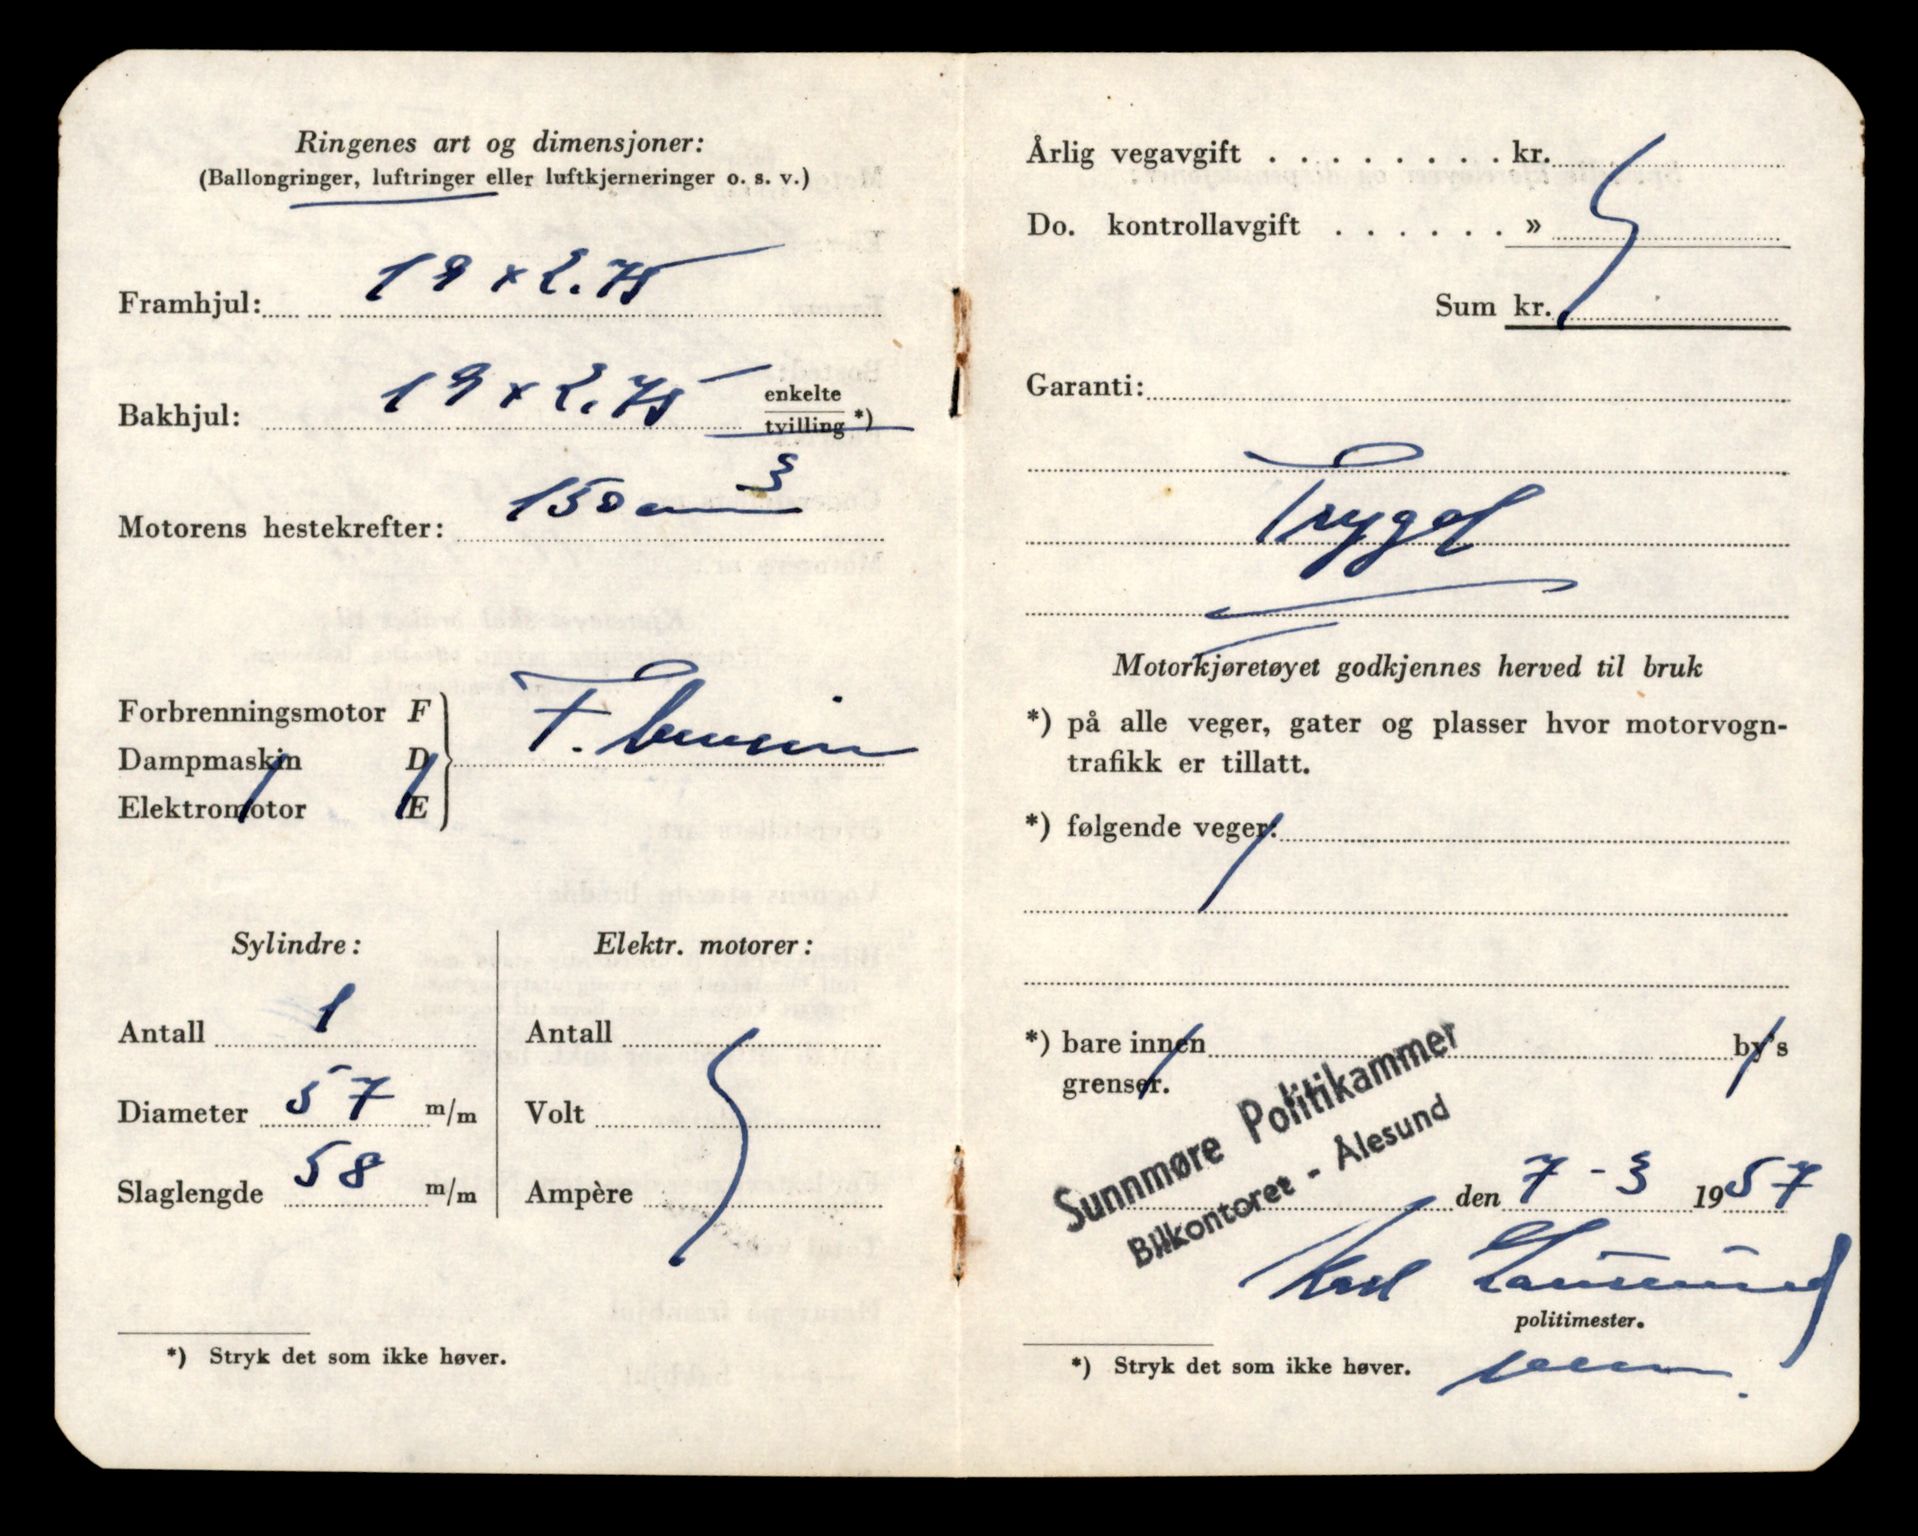 Ringenes art og dimensjoner:
(Ballongringer, luftringer eller luftkjerneringer o. s. v.)
Framhjul: 19 x 2.75
Bakhjul: 19 x 2.75 enkelte
tvilling *)
Motorens hestekrefter: 150 cm3
Forbrenningsmotor F
Dampmaskin D
Elektromotor E
F. bensin
Sylindre:
Antall 1
Diameter 57 m/m
Slaglengde 58 m/m
Elektr. motorer:
Antall
Volt
Ampère
*) Stryk det som ikke høver.
Årlig vegavgift . . . . . . . . kr.
Do. kontrollavgift . . . . . . »
Sum kr.
Garanti:
Trygd
Motorkjøretøyet godkjennes herved til bruk
*) på alle veger, gater og plasser hvor motorvogn-
trafikk er tillatt.
*) følgende veger:
*) bare innen by's
grenser.
Sunnmøre Politikammer
Bilkontoret - Ålesund
den 7 - 3 1957
Karl
politimester.
*) Stryk det som ikke høver.